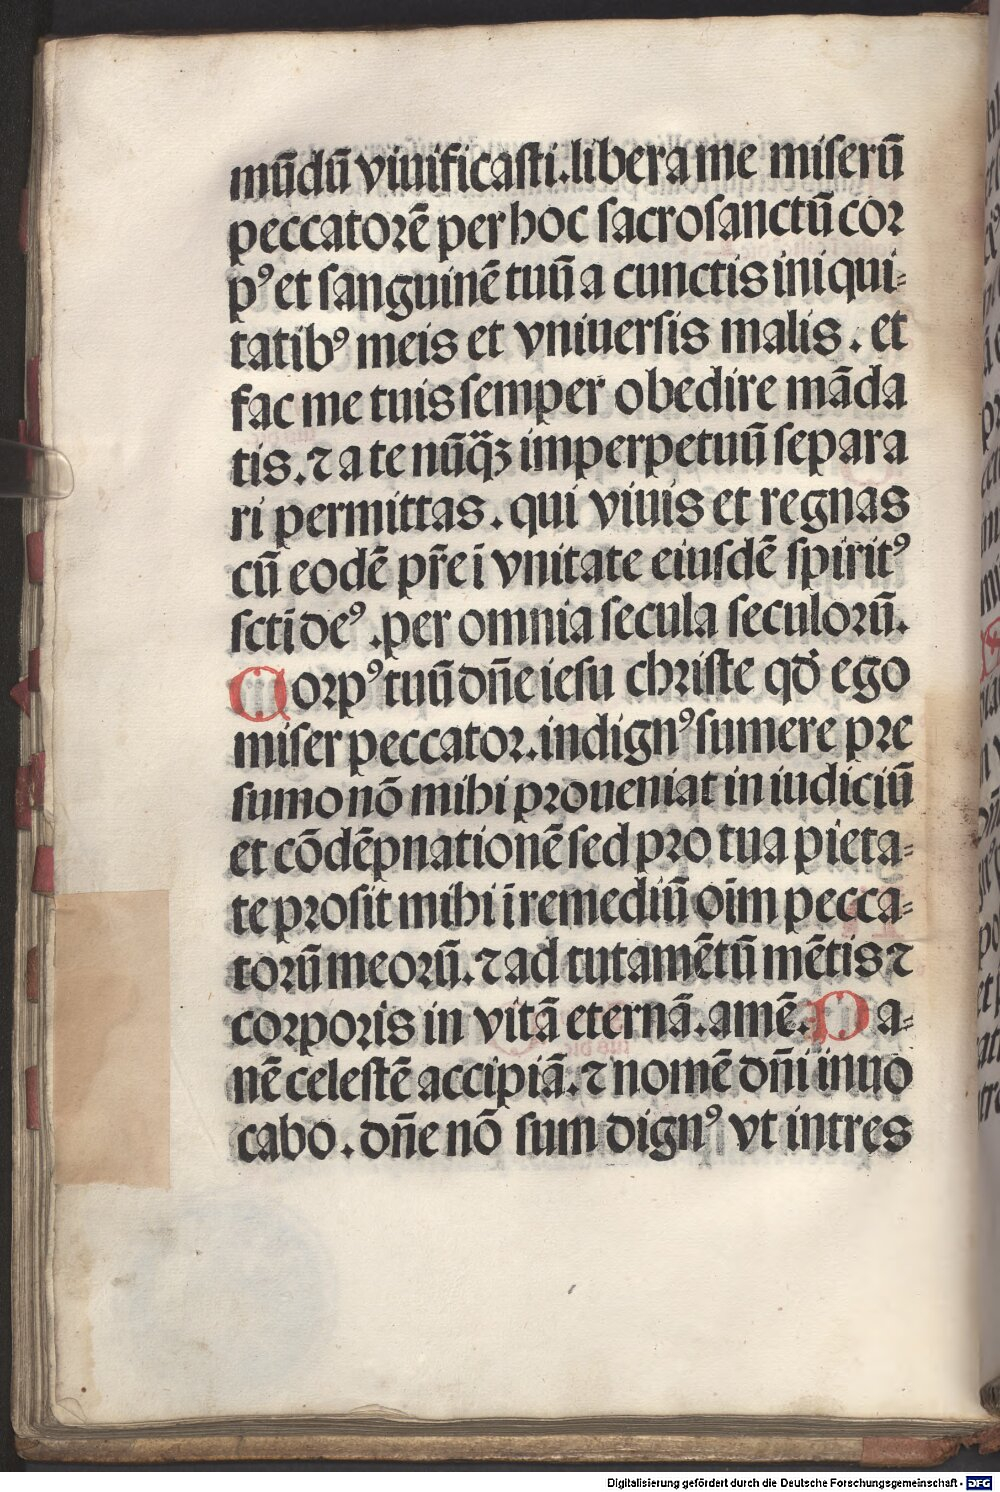 mūdū viuificasti.libera me miserū
peccatorē per hoc sacrosanctū cor
pꝰ et sanguinē tuū a cunctis iniqui⸗
tatibꝰ meis et vniuersis malis. et
fac me tuis semper obedire māda
tis. ⁊ a te nūq̄ꝫ imperpetuū separa
ri permittas. qui viuis et regnas
cū eodē pr̄e ī vnitate eiusdē spiritꝰ
sctī deꝰ .per omnia secula seculorū.
Corpꝰ tuū dn̄e iesu christe qd̛ ego
miser peccator.indignꝰ sumere pre
sumo nō mihi proueniat in iudiciū
et cōdēpnationē sed pro tua pieta⸗
te prosit mihi ī remediū oīm pecca⸗
torū meorū. ⁊ ad tutamētū mētis ⁊
corporis in vitā eternā. amē. Pa⸗
nē celestē accipiā. ⁊ nomē dn̄i inuo
cabo. dn̄e nō sum dignꝰ vt intres
Digitalisierung gefördert durch die Deutsche Forschungsgemeinschaft - DFG